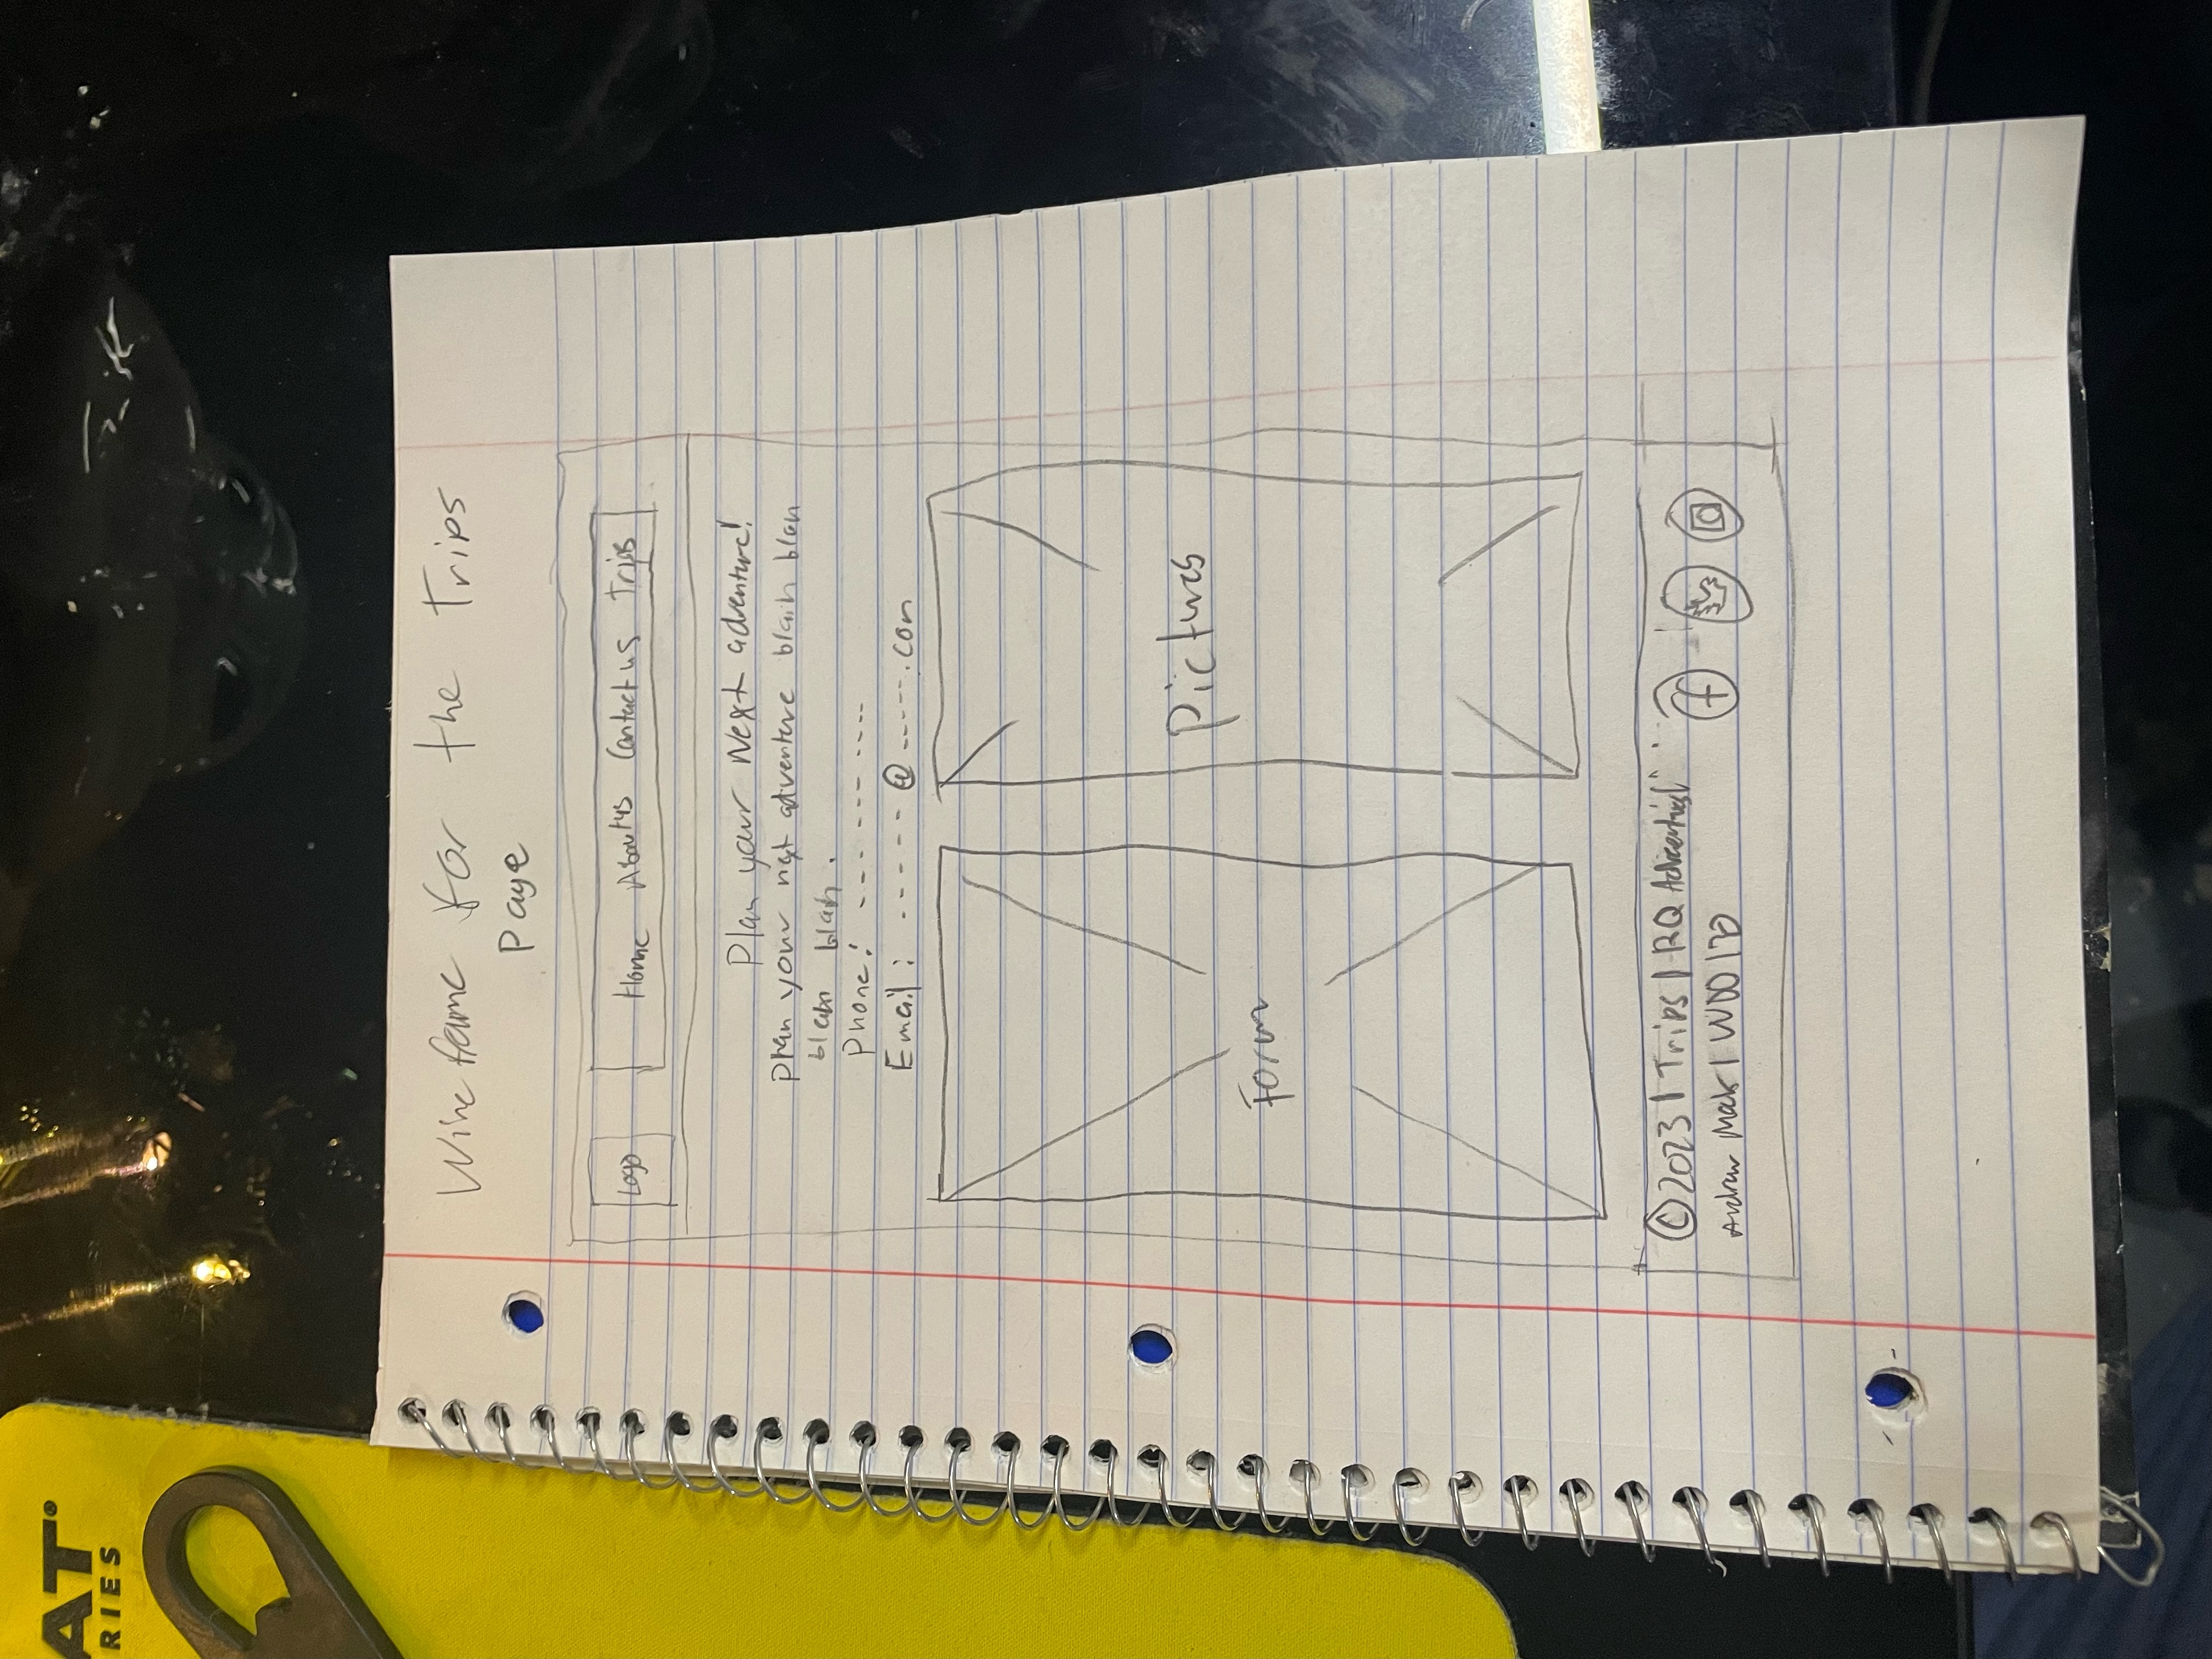 AT®
RIES
Wireframe for the Trips
Page
Logo
Home About us Contact us Trips
Plan your Next adventure!
Plan your next adventure blah blah
blah blah.
Phone: --- --- ----
Email: ----- @ -----.com
Form
Pictures
©2023 | Trips | RQ
Andrew | WDD 170
f